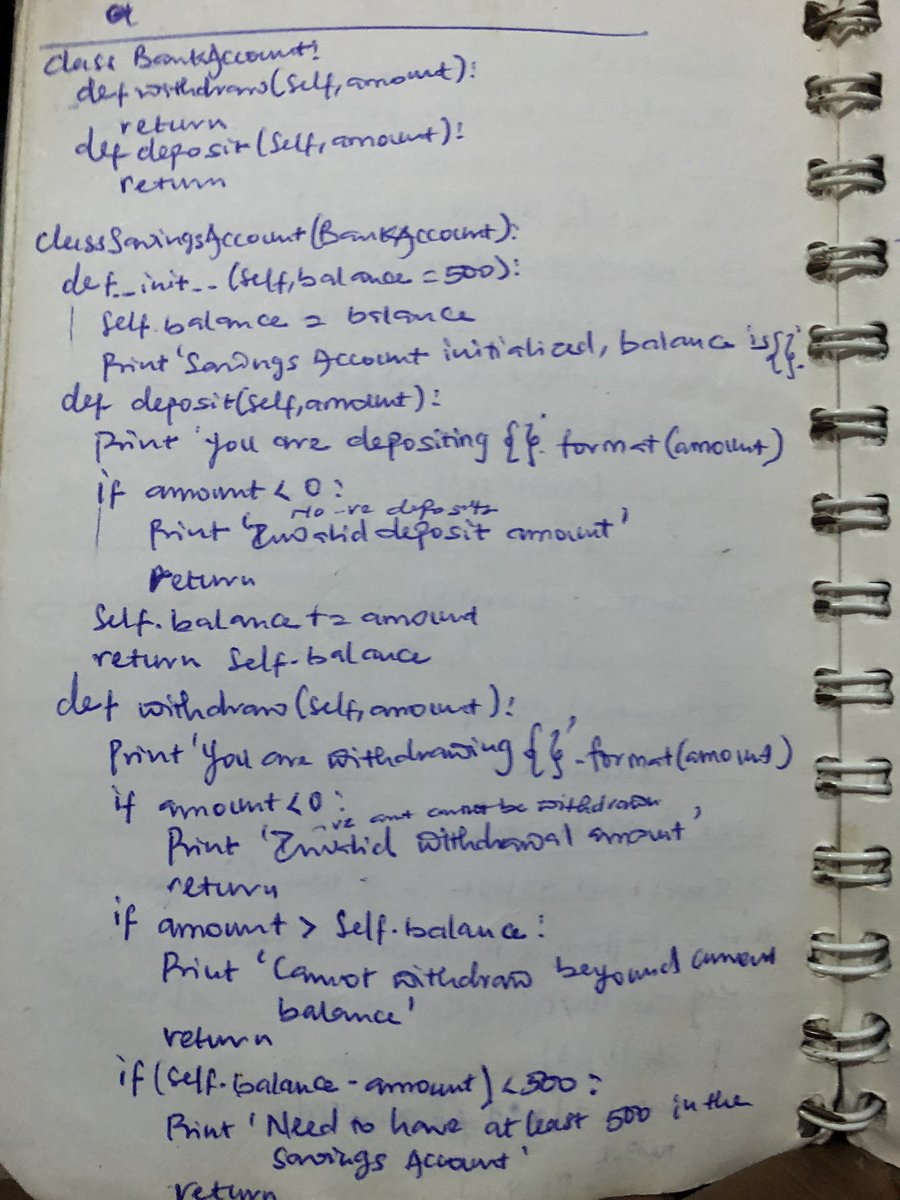 class BankAccount:
def withdraw(self, amount):
return
def deposit(self, amount):
return
class SavingsAccount(BankAccount):
def __init__(self, balance = 500):
self.balance = balance
Print 'Savings Account initialized, balance is {}'.
def deposit(self, amount):
Print 'You are depositing {}'. format(amount)
if amount < 0:
No -ve deposits
Print 'Invalid deposit amount'
return
Self.balance += amount
return Self.balance
def withdraw(self, amount):
Print 'You are withdrawing {}'.format(amount)
if amount < 0:
-ve amt cannot be withdrawn
Print 'Invalid withdrawal amount'
return
if amount > Self.balance:
Print 'Cannot withdraw beyound current
balance'
return
if (self.balance - amount) < 500:
Print 'Need to have at least 500 in the
Savings Account'
return